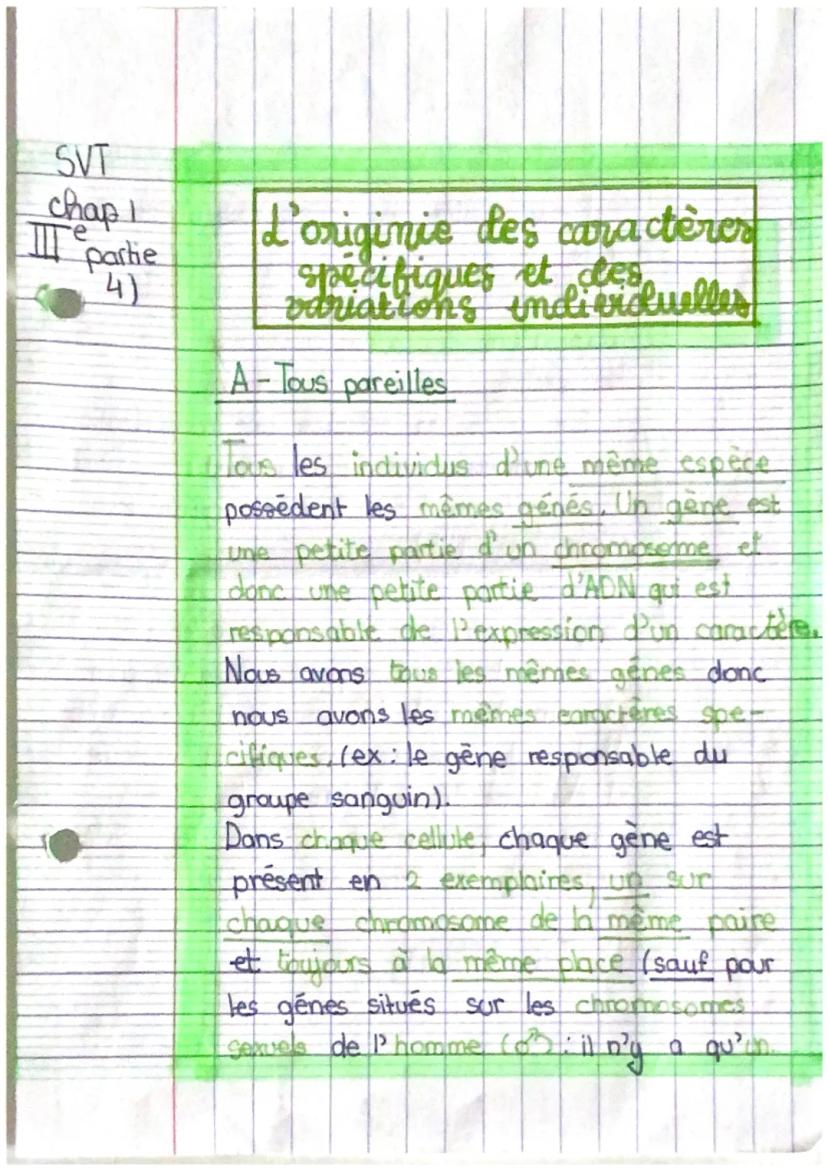 SVT
chap 1
IIIe partie
4)
L'originie des caractères
spécifiques et des
variations individuelles
A - Tous pareilles
Tous les individus d'une même espèce
possèdent les mêmes génés. Un gène est
une petite partie d'un chromosome et
donc une petite partie d'ADN qui est
responsable de l'expression d'un caractère.
Nous avons tous les mêmes génes donc
nous avons les mêmes caractères spe-
cifiques. (ex : le gène responsable du
groupe sanguin).
Dans chaque cellule, chaque gène est
présent en 2 exemplaires, un sur
chaque chromosome de la même paire
et toujours à la même place (sauf pour
les génes situés sur les chromosomes
sexuels de l'homme (♂) : il n'y a qu'un.